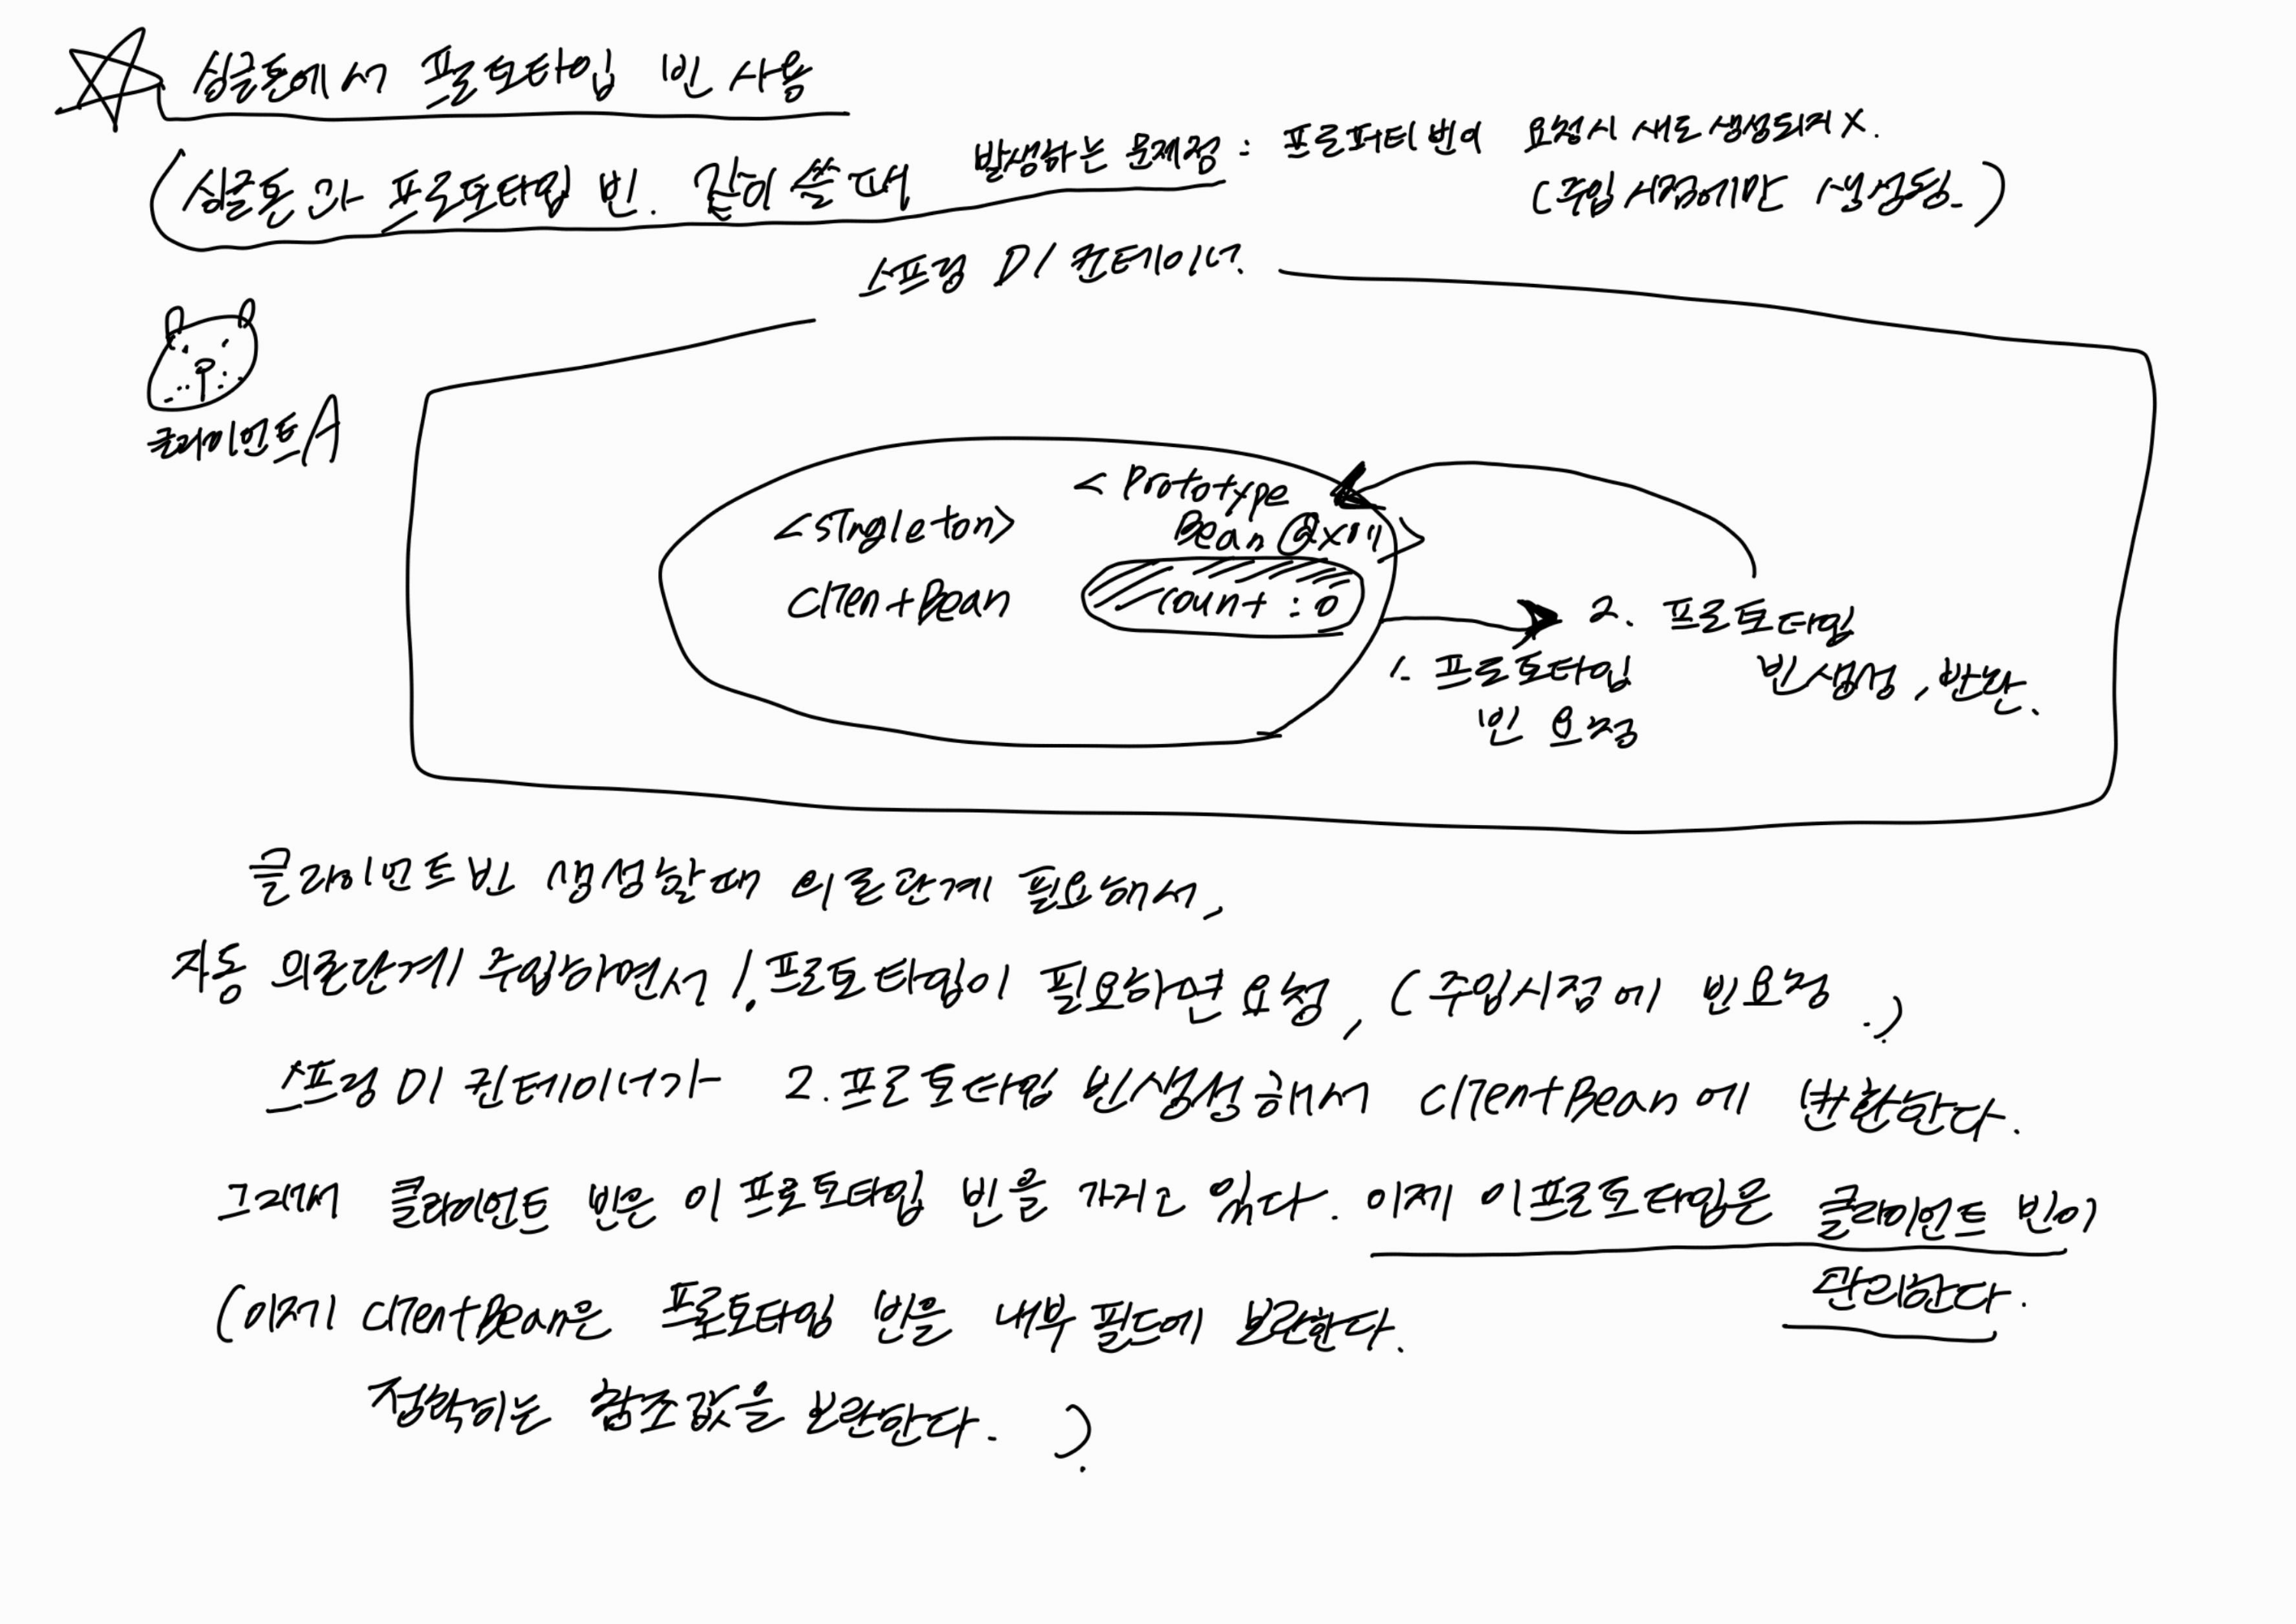 싱글톤에서 프로토타입 빈 사용
(싱글톤과 프로토타입 빈. 같이 쓸 때 발생하는 문제점 : 프로퍼티 빈이 요청시 새로 생성되지 X.
(주입 시점에만 생성됨.)
스프링 DI 컨테이너
클라이언트A
<Prototype
Bean@x01>
<singleton>
ClientBean
count : 0
1. 프로토타입
빈 요청
2. 프로토타입
빈 생성, 반환.
클라이언트빈 생성할때 의존관계 필요해서,
자동 의존관계 주입하면서 1. 프로토타입이 필요하면 요청, (주입시점에 빈요청.)
스프링 DI 컨테이너가 2. 프로토타입 빈생성해서 ClientBean에 반환한다.
그래서 클라이언트 빈은 이 프로토타입 빈을 가지고 있다. 이제 이프로토타입은 클라이언트 빈이
관리한다.
(이제 ClientBean은 프로토타입 빈을 내부 필드에 보관한다.
정확히는 참조값을 보관한다. ).